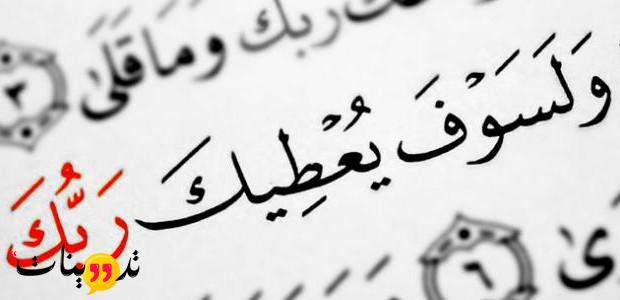 ربك وما قلى ٣
وَلَسَوْفَ يُعْطِيكَ رَبُّكَ
٦
تدوينات